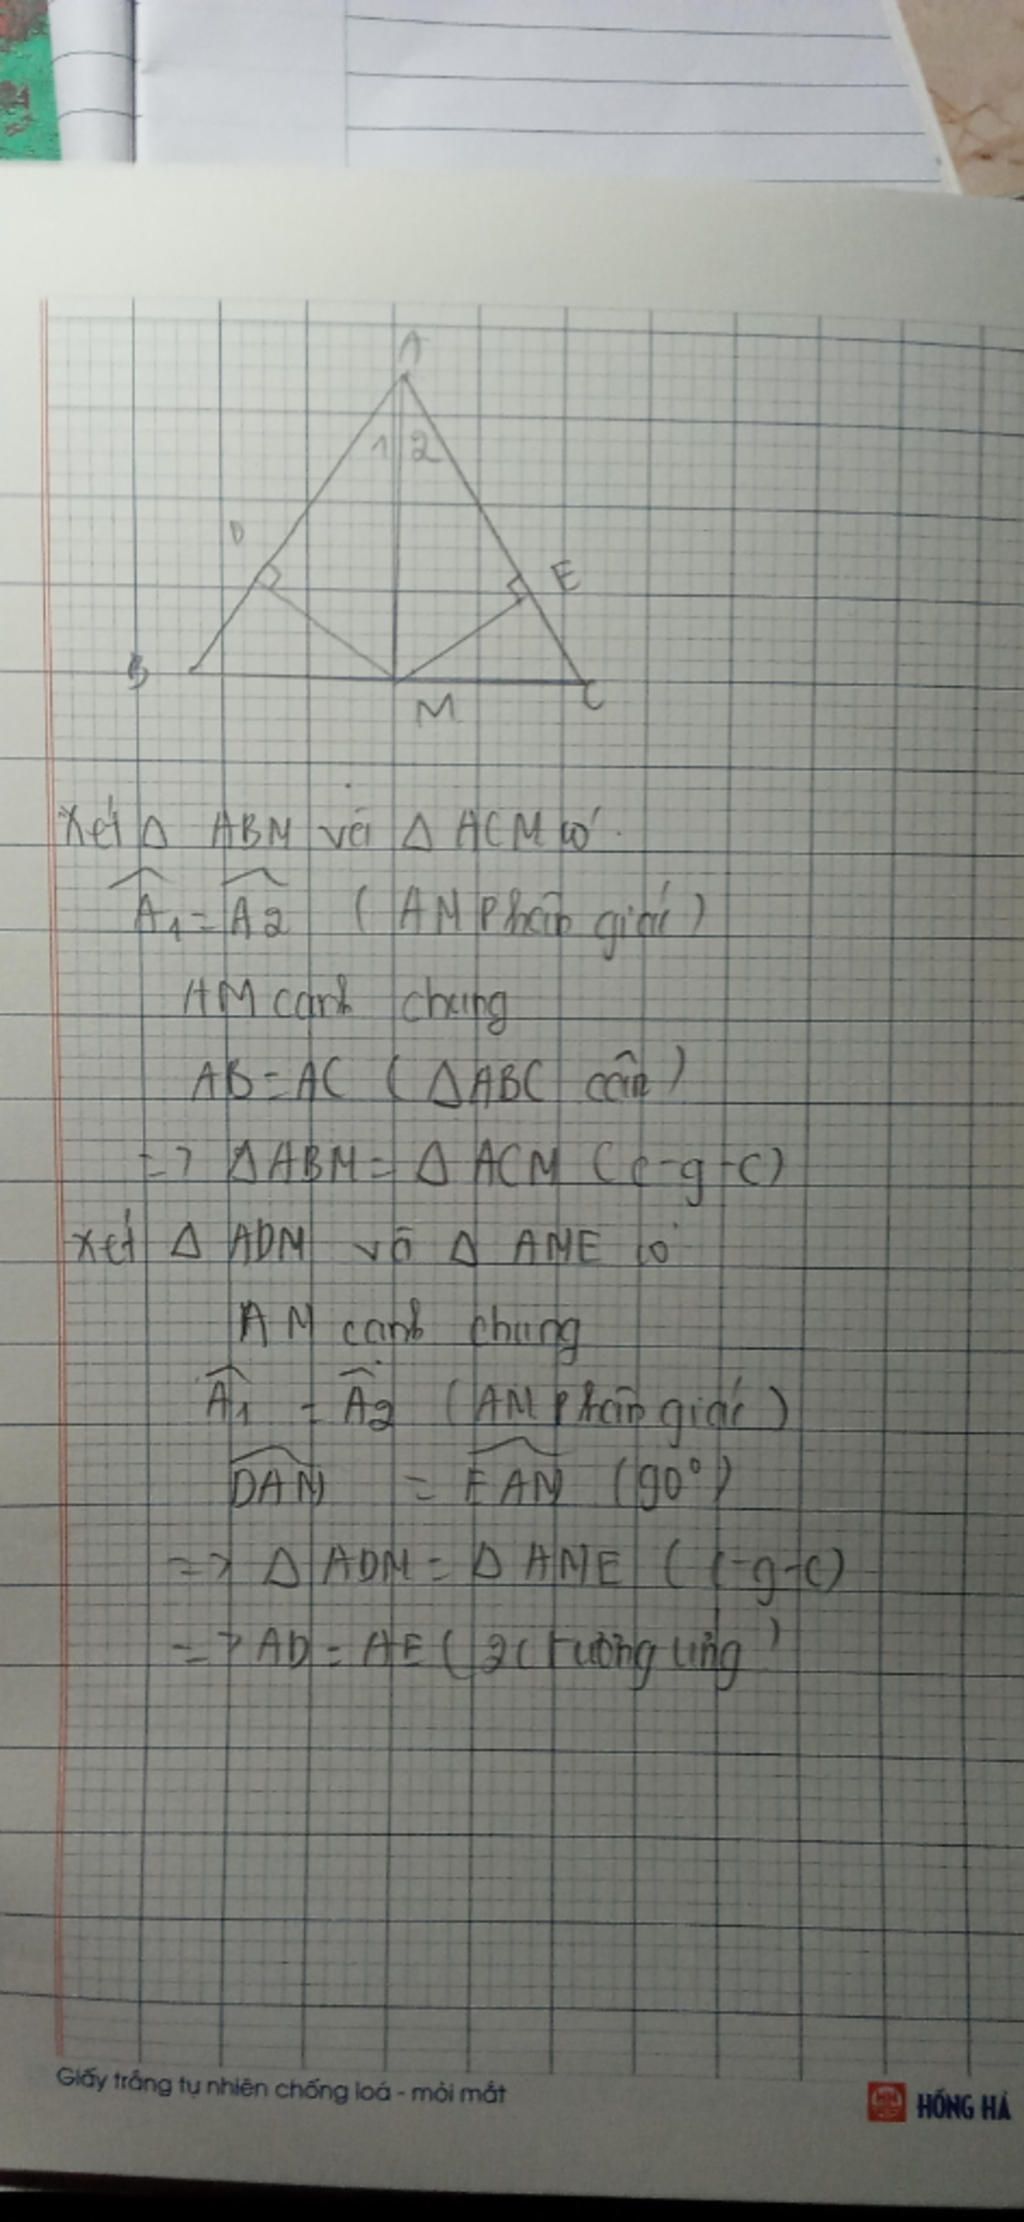 A
1 2
D
E
B
M
C
Xét Δ ABM và Δ ACM có
Â1 = Â2 (AM phân giác)
AM cạnh chung
AB = AC (ΔABC cân)
=> ΔABM = Δ ACM (c-g-c)
Xét Δ ADM và Δ AME có
AM cạnh chung
Â1 = Â2 (AM phân giác)
DAM = EAM (90°)
=> Δ ADM = Δ AME (c-g-c)
=> AD = AE (2c tương ứng)
Giấy trắng tự nhiên chống loá - mỏi mắt
HỒNG HÀ